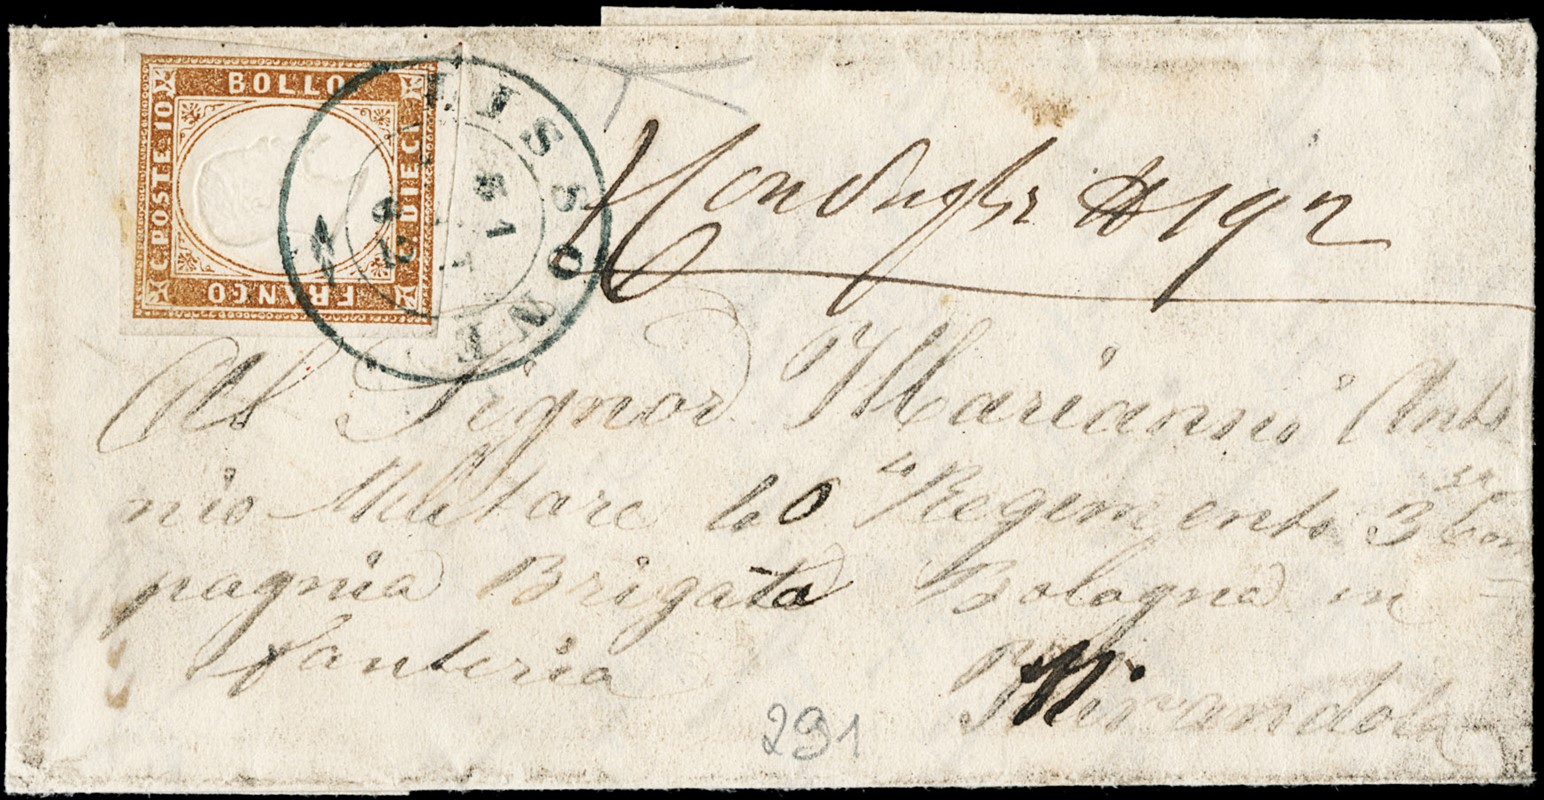 BOLLO
C. POSTE 10
C. DIECI
FRANCO
LISSONE
N 192
Al Signor Marianni Anto
nio Militare 40 Regimento 3 Com
pagnia Brigata Bologna in
fanteria
Mirandola
291